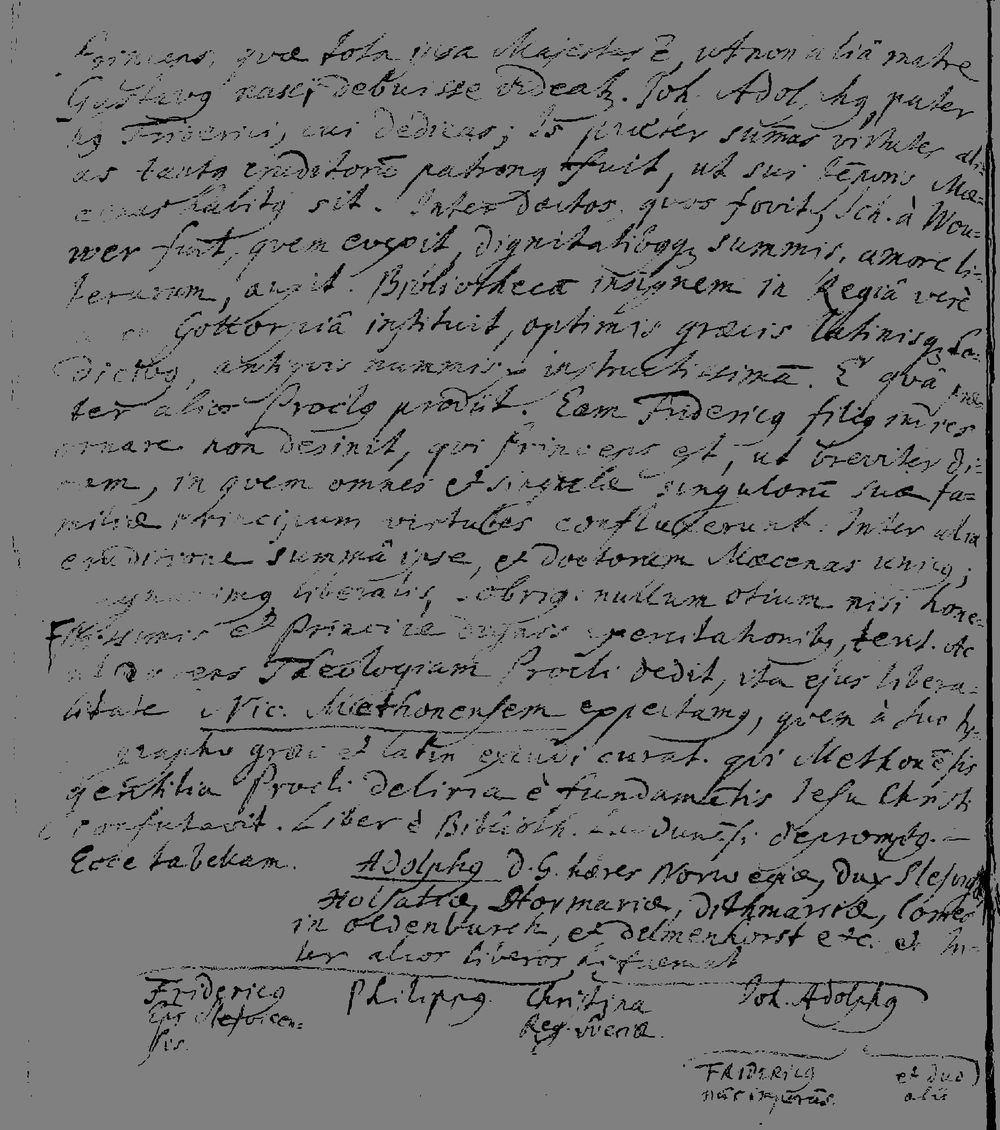 Princeps, quæ tota ipsa Majestas ē, ut non aliâ matre
Gustavꝰ nasci debuisse videatr. Joh. Adolphꝰ, pater
hꝰ Friderici, cui dedicas; Is præter sum̄as virtutes ali-
as tantꝰ eruditorū patronꝰ fuit, ut sui tēporis Mæ-
cenas habitꝰ sit. Inter doctos, quos fovit, Joh. à Wou-
wer fuit, quem evexit, dignitatibꝰqȝ summis, amore li-
terarum, auxit. Bibliothecā insignem in Regiâ verè
Gottorpiâ instituit, optimis græcis Latinisqȝ Co-
dicibꝰ, antiquis nummis instructissimā. E quâ præ-
ter alios Proclꝰ prodiit. Eam Fridericꝰ filiꝰ in dies
ornare non desinit, qui Princeps est, ut breviter di-
cam, in quem omnes et singulæ singulorū suæ fa-
miliæ principum virtutes confluxerunt. Inter alia
eruditione summâ ipse, et doctorum Mæcenas unicꝰ;
liberalis, sobriꝰ, nullum otium nisi hone-
stissimis et Principe dignis exercitationibꝰ, terit. Ac
ut Theologiam Procli dedit, ita ejus libera-
litate Nic. Methonensem expectamꝰ, quem à suo ty-
pographo græc et latin excudi curat. qui Methonēsis
gentilia Procli deliria è fundamētis Jesu Christi
confutavit. Liber è Biblioth. depromptꝰ.
Ecce tabellam. Adolphꝰ D.G. hæres Norwegiæ, Dux Slesvigæ
Holsatiæ, Stormariæ, Dithmarsiæ, Comes
in Oldenburch, et Delmenhorst etc. et In-
ter alios liberos hi fuerunt
Fridericꝰ Philippꝰ. Christina Joh. Adolphꝰ
Eps Slesvicen- Reg. Sueciæ.
sis.
FRIDERICꝰ et duo
alii